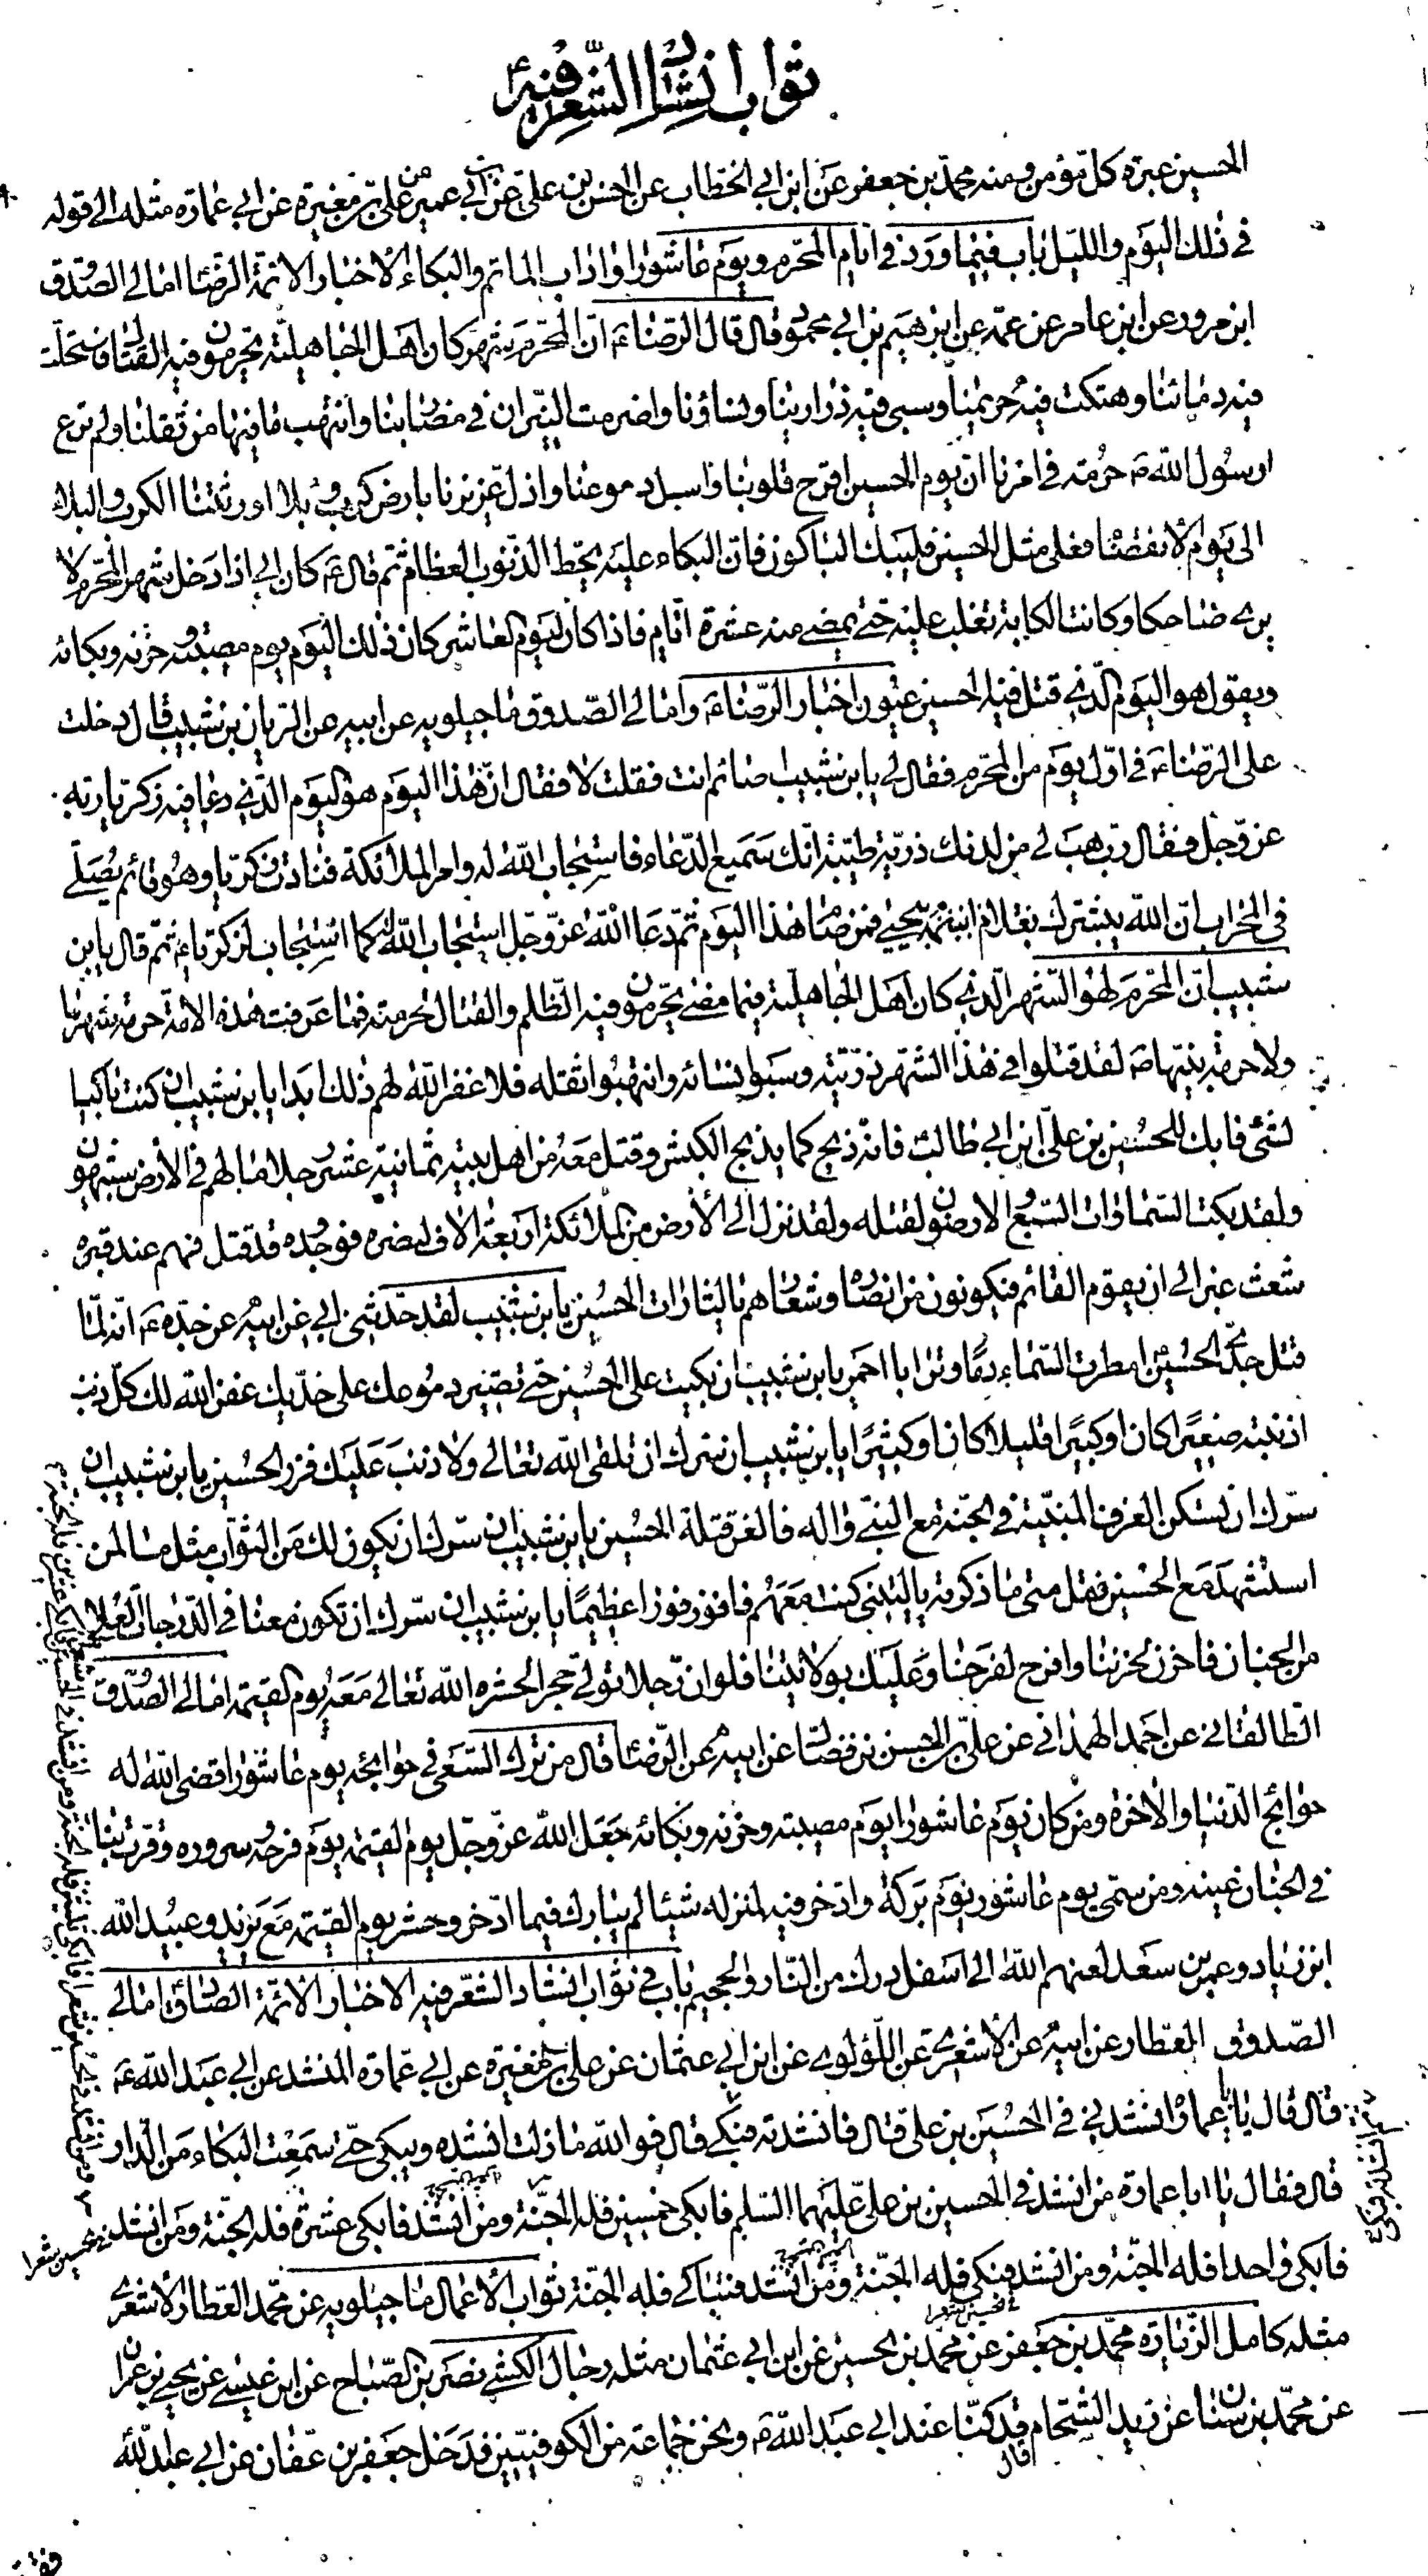 ثواب انشاد الشعر فيه
الحسين عبرة كل مؤمن ومنه محمد بن جعفر عن ابن ابي الخطاب عن الحسن بن علي عن ابن ابي عمير عن علي بن مغيرة عن ابي عمارة مثله الى قوله
في ذلك اليوم والليل باب فيما ورد في ايام المحرم ويوم عاشورا واداب الماتم والبكاء الاخبار الائمة الرضا امالي الصدوق
ابن مرور عن ابن عامر عن عمه عن ابرهيم بن ابي محمود قال قال الرضاء ان المحرم شهر كان اهل الجاهلية يحرمون فيه القتال فاستحلت
فيه دمائنا وهتكت فيه حريمنا وسبى فيه ذرارينا ونساؤنا واضرمت النيران في مضاربنا وانتهب ما فيها من ثقلنا ولم ترع
لرسول الله ص حرمة في امرنا ان يوم الحسين اقرح قلوبنا واسبل دموعنا واذل عزيزنا بارض كرب وبلا اورثتنا الكرب والبلاء
الى يوم الانقضاء فعلى مثل الحسين فليبك الباكون فان البكاء عليه يحط الذنوب العظام ثم قال ع كان ابي اذا دخل شهر المحرم لا
يرى ضاحكا وكانت الكابة تغلب عليه حتى يمضي منه عشرة ايام فاذا كان اليوم العاشر كان ذلك اليوم يوم مصيبته وحزنه وبكائه
ويقول هو اليوم الذي قتل فيه الحسين عيون اخبار الرضاء وامالي الصدوق ماجيلويه عن ابيه عن الريان بن شبيب قال دخلت
على الرضاء في اول يوم من المحرم فقال لي يا بن شبيب اصائم انت فقلت لا فقال ان هذا اليوم هو اليوم الذي دعا فيه زكريا ربه
عز وجل فقال رب هب لي من لدنك ذرية طيبة انك سميع الدعاء فاستجاب الله له وامر الملائكة فنادت زكريا وهو قائم يصلي
في المحراب ان الله يبشرك بيحيى فمن صام هذا اليوم ثم دعا الله عز وجل استجاب الله له كما استجاب لزكرياء ثم قال يا بن
شبيب ان المحرم لهو الشهر الذي كان اهل الجاهلية فيما مضى يحرمون فيه الظلم والقتال لحرمته فما عرفت هذه الامة حرمة شهرها
ولا حرمة نبيها ص لقد قتلوا في هذا الشهر ذريته وسبوا نسائه وانتهبوا ثقله فلا غفر الله لهم ذلك ابدا يا بن شبيب ان كنت باكيا
لشئ فابك للحسين بن علي ابن ابي طالب فانه ذبح كما يذبح الكبش وقتل معه من اهل بيته ثمانية عشر رجلا ما لهم في الارض شبيهون
ولقد بكت السماوات السبع والارضون لقتله ولقد نزل الى الارض من الملائكة اربعة الاف لنصره فوجدوه قد قتل فهم عند قبره
شعث غبر الى ان يقوم القائم فيكونون من انصاره وشعارهم يا لثارات الحسين يا بن شبيب لقد حدثني ابي عن ابيه عن جده ع انه لما
قتل جدي الحسين امطرت السماء دما وترابا احمر يا بن شبيب ان بكيت على الحسين حتى تصير دموعك على خديك غفر الله لك كل ذنب
اذنبته صغيرا كان او كبيرا قليلا كان او كثيرا يا بن شبيب ان سرك ان تلقى الله تعالى ولا ذنب عليك فزر الحسين يا بن شبيب ان
سرك ان تسكن الغرف المبنية في الجنة مع النبي واله فالعن قتلة الحسين يا بن شبيب ان سرك ان يكون لك من الثواب مثل ما لمن
استشهد مع الحسين فقل متى ما ذكرته يا ليتني كنت معهم فافوز فوزا عظيما يا بن شبيب ان سرك ان تكون معنا في الدرجات العلى
من الجنان فاحزن لحزننا وافرح لفرحنا وعليك بولايتنا فلو ان رجلا تولى حجرا لحشره الله تعالى معه يوم القيمة امالي الصدوق
الطالقاني عن احمد الهمداني عن علي بن الحسن بن فضال عن ابيه عن الرضا قال من ترك السعي في حوائجه يوم عاشورا قضى الله له
حوائج الدنيا والاخرة ومن كان يوم عاشورا يوم مصيبته وحزنه وبكائه جعل الله عز وجل يوم القيمة يوم فرحه وسروره وقرت بنا
في الجنان عينه ومن سمى يوم عاشور يوم بركة وادخر فيه لمنزله شيئا لم يبارك فيما ادخر وحشر يوم القيمة مع يزيد وعبيد الله
ابن زياد وعمر بن سعد لعنهم الله الى اسفل درك من النار والجحيم باب في ثواب انشاد الشعر فيه الاخبار الائمة الصادق امالي
الصدوق العطار عن ابيه عن الاشعري عن اللؤلوي عن ابن ابي عثمان عن علي بن مغيرة عن ابي عمارة المنشد عن ابي عبد الله ع
قال قال يا با عمارة انشدني في الحسين بن علي قال فانشدته فبكى قال فو الله ما زلت انشده ويبكي حتى سمعت البكاء من الدار
قال فقال يا ابا عمارة من انشد في الحسين بن علي عليهما السلم فابكى خمسين فله الجنة ومن انشد فابكى عشرة فله الجنة ومن انشد في الحسين شعرا
فابكى واحدا فله الجنة ومن انشد فبكى فله الجنة ومن انشد فتباكى فله الجنة ثواب الاعمال ماجيلويه عن محمد العطار الاشعري
مثله كامل الزيارة محمد بن جعفر عن محمد بن الحسين عن ابن ابي عثمان مثله رجال الكشي نصر بن الصباح عن ابن عيسى عن يحيى بن عمران
عن محمد بن سنان عن زيد الشحام قال كنا عند ابي عبد الله ع ونحن جماعة من الكوفيين فدخل جعفر بن عفان عن ابي عبد الله